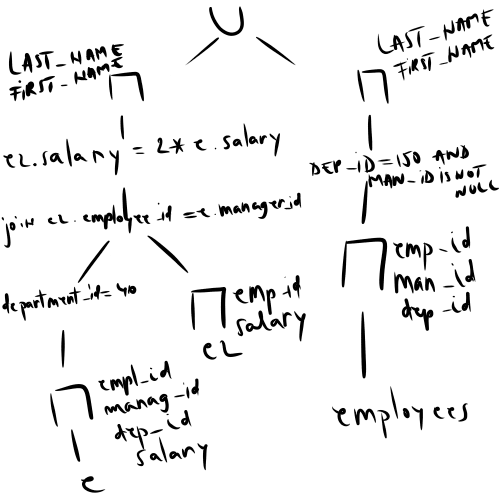 U
LAST_NAME
FIRST_NAME
∏
e2.salary = 2* e.salary
join e2.employee_id = e.manager_id
department_id = 40
∏ empl_id
manag_id
dep_id
salary
e
∏ emp_id
salary
e2
LAST_NAME
FIRST_NAME
∏
DEP_iD = 150 AND
MAN_iD iS NOT
NULL
∏ emp_id
man_id
dep_id
employees